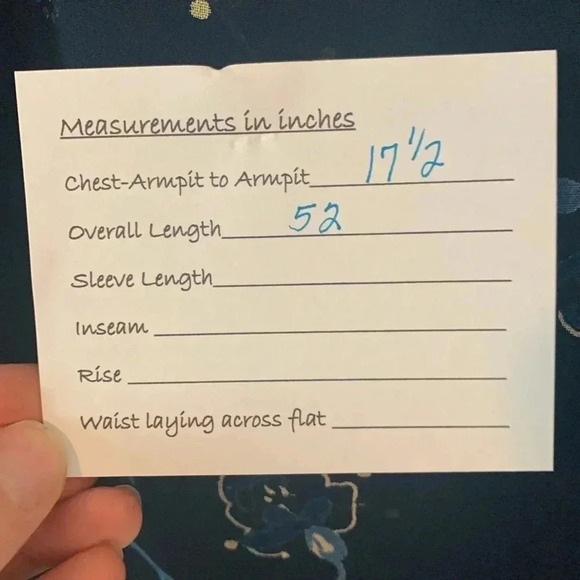 Measurements in inches
Chest-Armpit to Armpit 17 1/2
Overall Length 52
Sleeve Length
Inseam
Rise
Waist laying across flat